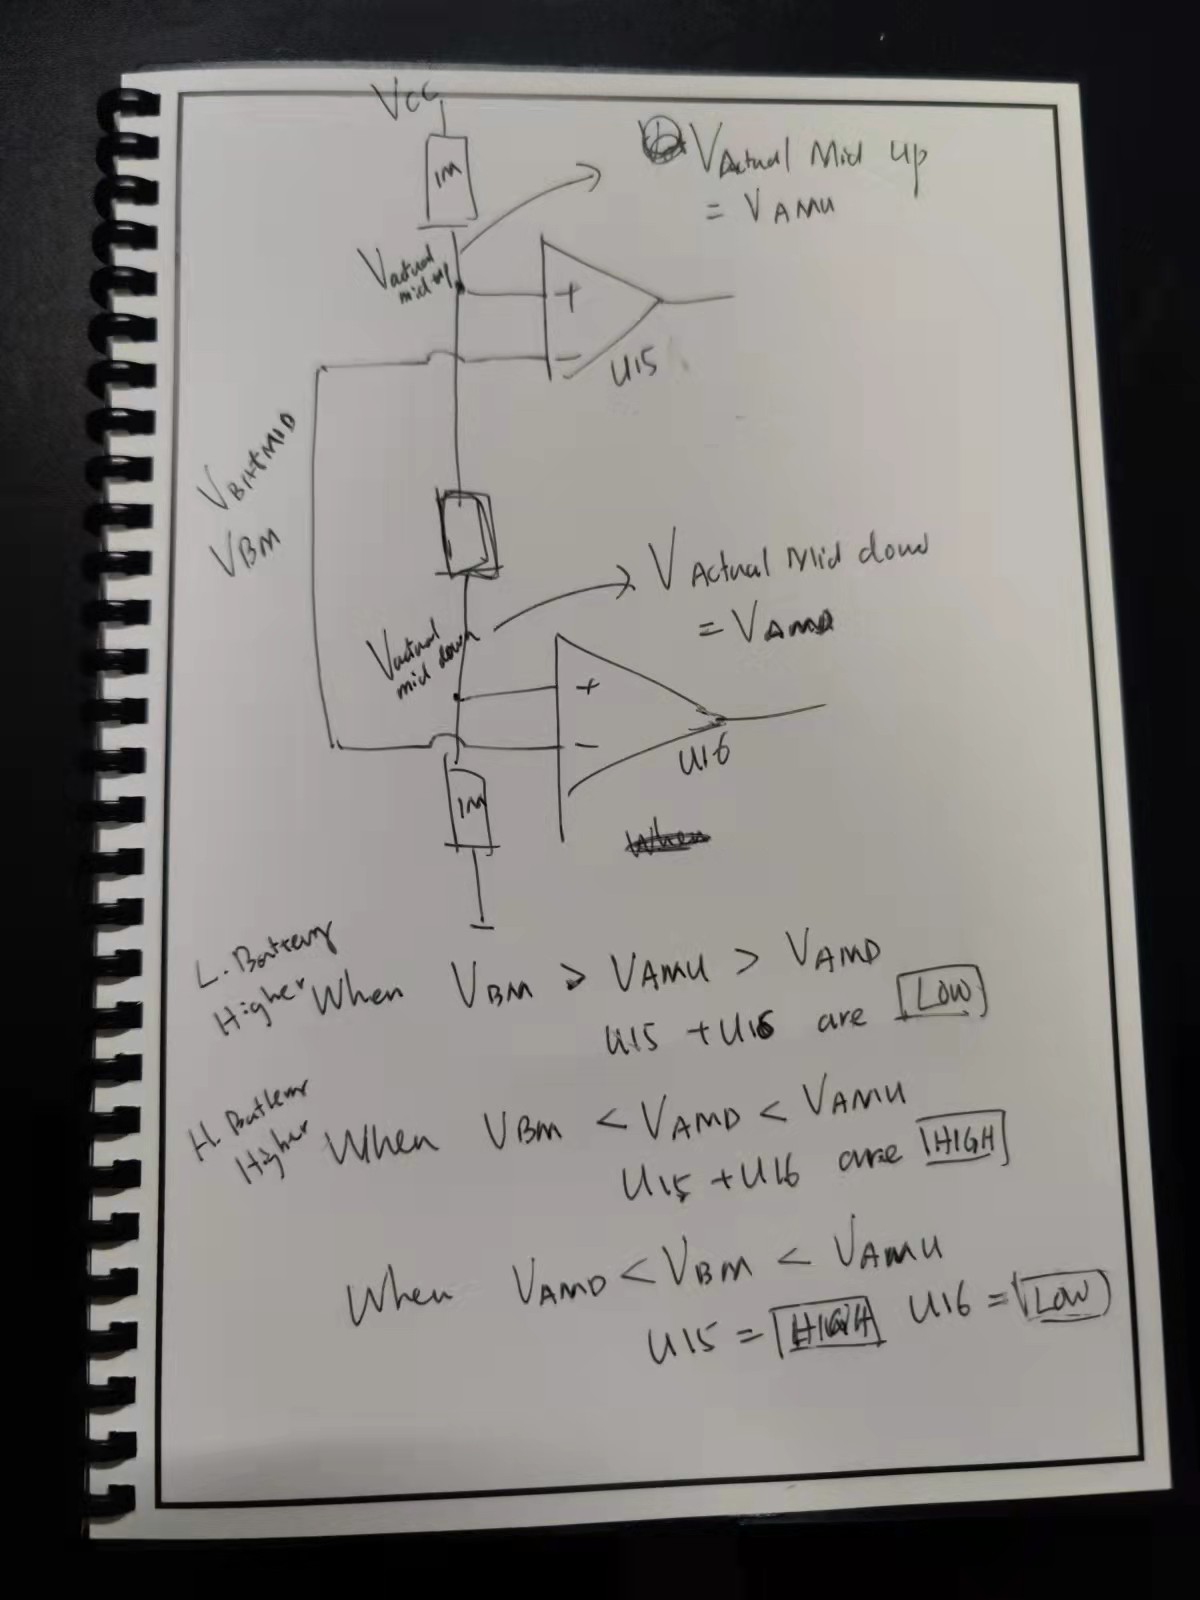 VCC
1M
VActual Mid up
= VAMU
Vactual
mid up
+
−
U15
VBATMID
VBM
VActual Mid down
= VAMD
Vactual
mid down
+
−
U16
1M
When
L. Battery
Higher When VBM > VAMU > VAMD
U15 + U16 are LOW
H. Battery
Higher When VBM < VAMD < VAMU
U15 + U16 are HIGH
When VAMD < VBM < VAMU
U15 = HIGH U16 = LOW